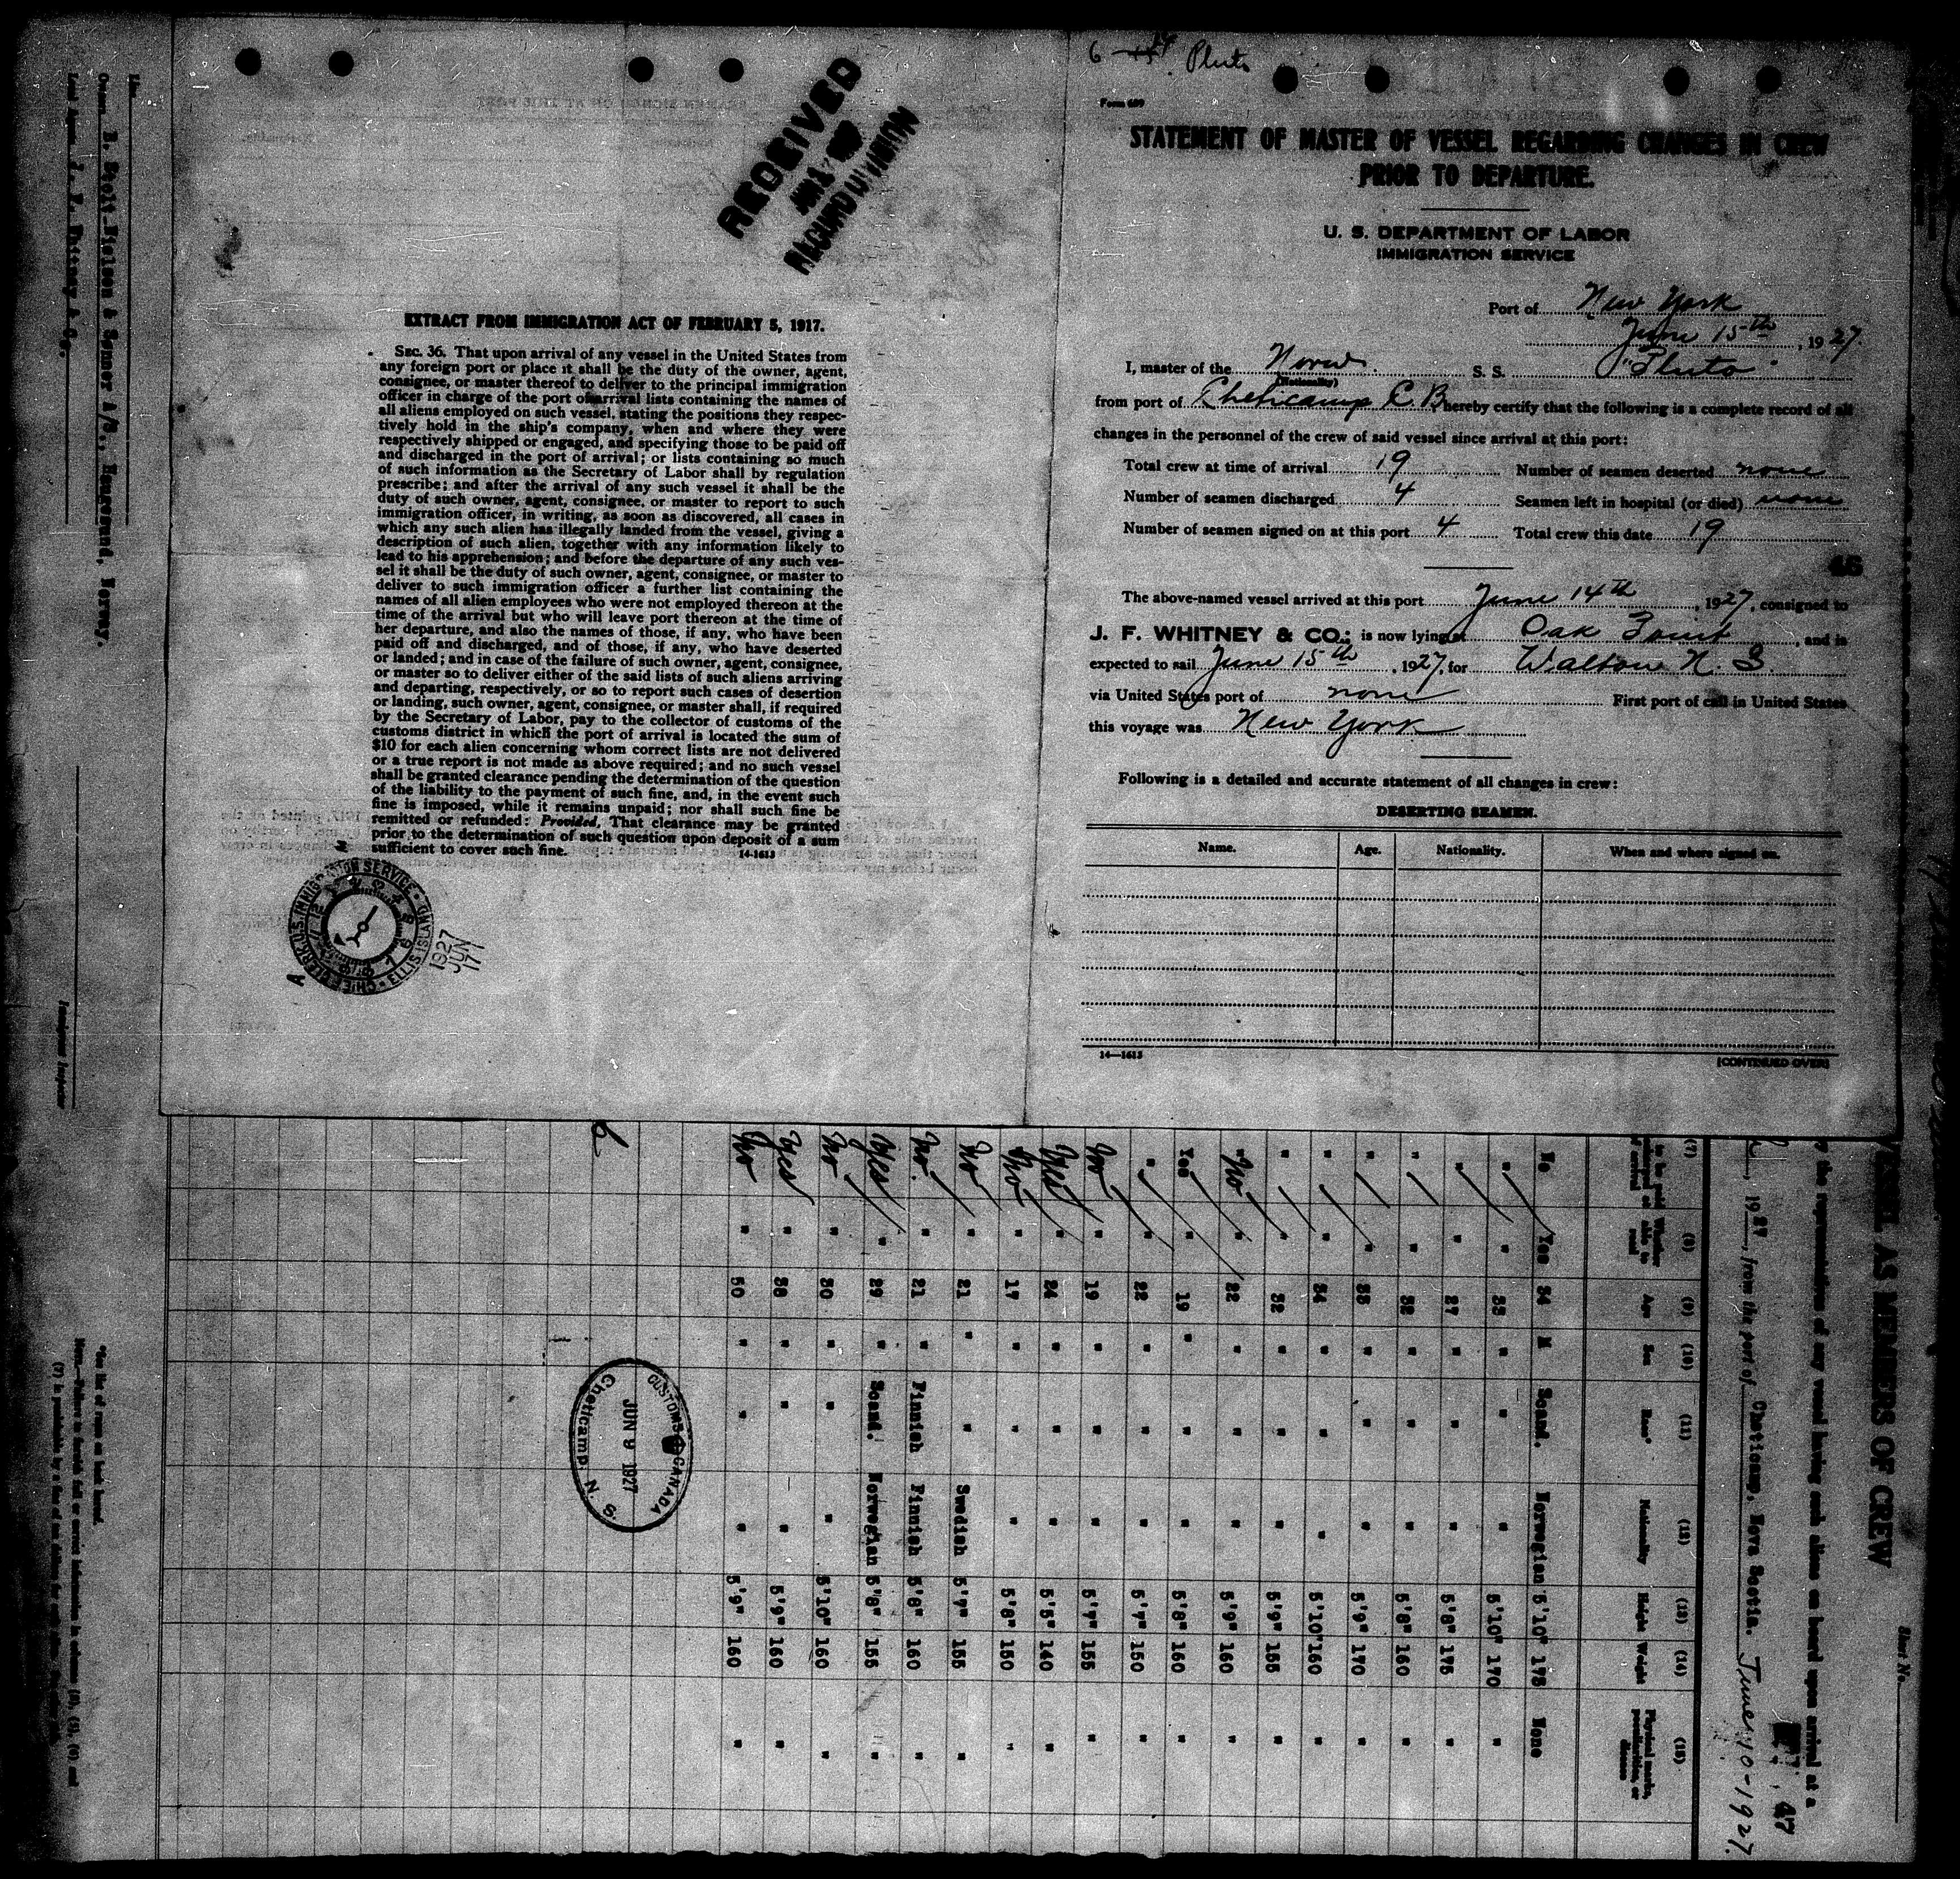 6 14 Pluto
Form 689
STATEMENT OF MASTER OF VESSEL REGARDING CHANGES IN CREW
PRIOR TO DEPARTURE.
U. S. DEPARTMENT OF LABOR
IMMIGRATION SERVICE
Port of New York
June 15th, 1927.
I, master of the Norw. S. S. "Pluto"
(Nationality)
from port of Cheticamp C. B. hereby certify that the following is a complete record of all
changes in the personnel of the crew of said vessel since arrival at this port:
Total crew at time of arrival 19 Number of seamen deserted none
Number of seamen discharged 4 Seamen left in hospital (or died) none
Number of seamen signed on at this port 4 Total crew this date 19
46
The above-named vessel arrived at this port June 14th, 1927, consigned to
J. F. WHITNEY & CO.; is now lying at Oak Point, and is
expected to sail June 15th, 1927, for Walton N. S.
via United States port of none First port of call in United States
this voyage was New York
Following is a detailed and accurate statement of all changes in crew:
DESERTING SEAMEN.
Name. Age. Nationality. When and where signed on.
14—1613
(CONTINUED OVER)
RECEIVED
EXTRACT FROM IMMIGRATION ACT OF FEBRUARY 5, 1917.
SEC. 36. That upon arrival of any vessel in the United States from
any foreign port or place it shall be the duty of the owner, agent,
consignee, or master thereof to deliver to the principal immigration
officer in charge of the port of arrival lists containing the names of
all aliens employed on such vessel, stating the positions they respec-
tively hold in the ship's company, when and where they were
respectively shipped or engaged, and specifying those to be paid off
and discharged in the port of arrival; or lists containing so much
of such information as the Secretary of Labor shall by regulation
prescribe; and after the arrival of any such vessel it shall be the
duty of such owner, agent, consignee, or master to report to such
immigration officer, in writing, as soon as discovered, all cases in
which any such alien has illegally landed from the vessel, giving a
description of such alien, together with any information likely to
lead to his apprehension; and before the departure of any such ves-
sel it shall be the duty of such owner, agent, consignee, or master to
deliver to such immigration officer a further list containing the
names of all alien employees who were not employed thereon at the
time of the arrival but who will leave port thereon at the time of
her departure, and also the names of those, if any, who have been
paid off and discharged, and of those, if any, who have deserted
or landed; and in case of the failure of such owner, agent, consignee,
or master so to deliver either of the said lists of such aliens arriving
and departing, respectively, or so to report such cases of desertion
or landing, such owner, agent, consignee, or master shall, if required
by the Secretary of Labor, pay to the collector of customs of the
customs district in which the port of arrival is located the sum of
$10 for each alien concerning whom correct lists are not delivered
or a true report is not made as above required; and no such vessel
shall be granted clearance pending the determination of the question
of the liability to the payment of such fine, and, in the event such
fine is imposed, while it remains unpaid; nor shall such fine be
remitted or refunded: Provided, That clearance may be granted
prior to the determination of such question upon deposit of a sum
sufficient to cover such fine.
14-1613
CHIEF CLERK U.S. IMMIGRATION SERVICE ELLIS ISLAND
1927 JUN 17
VESSEL AS MEMBERS OF CREW
Sheet No.
the representative of any vessel having such aliens on board upon arrival at a
47
, 1927, from the port of Cheticamp, Nova Scotia. June 10-1927.
(7) (8) (9) (10) (11) (12) (13) (14) (15)
Whether able to read Age Sex Race* Nationality Height Weight Physical marks, peculiarities, or disease
No Yes 54 M Scand. Norwegian 5'10" 175 None
" " 35 " " " 5'10" 170 "
" " 27 " " " 5'8" 175 "
" " 32 " " " 5'8" 160 "
" " 35 " " " 5'9" 170 "
" " 34 " " " 5'10" 160 "
" " 32 " " " 5'9" 155 "
" No " 22 " " " 5'9" 160 "
Yes " 19 " " " 5'8" 160 "
" " 22 " " " 5'7" 150 "
No " 19 " " " 5'7" 155 "
Yes " 24 " " " 5'5" 140 "
No " 17 " " " 5'8" 150 "
No " 21 " " Swedish 5'7" 155 "
No. " 21 " Finnish Finnish 5'8" 160 "
Yes " 29 " Scand. Norwegian 5'8" 155 "
No " 30 " " " 5'10" 160 "
Yes " 38 " " " 5'9" 160 "
No " 50 " " " 5'9" 160 "
6
CUSTOMS CANADA
JUN 9 1927
Cheticamp N. S.
*See list of races on back hereof.
Line
Owners B. Stolt-Nielsen & Sonner A/S., Haugesund, Norway.
Local Agents J. F. Whitney & Co.
Immigrant Inspector